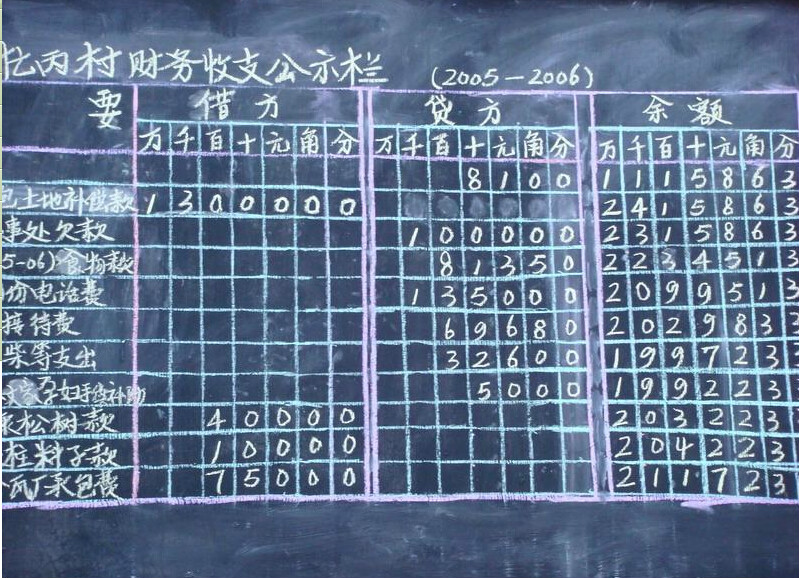 丙村财务收支公示栏 (2005-2006)
要 借方 贷方 余额
万千百十元角分 万千百十元角分 万千百十元角分
8100 1115863
包土地补偿款 1300000 2415863
事处欠款 100000 2315863
5-06)食物款 81350 2234513
份电话费 135000 2099513
接待费 69680 2029833
柴等支出 32600 1997233
5000 1992233
松树款 40000 2032233
柱料子款 10000 2042233
瓦厂承包费 75000 2117233